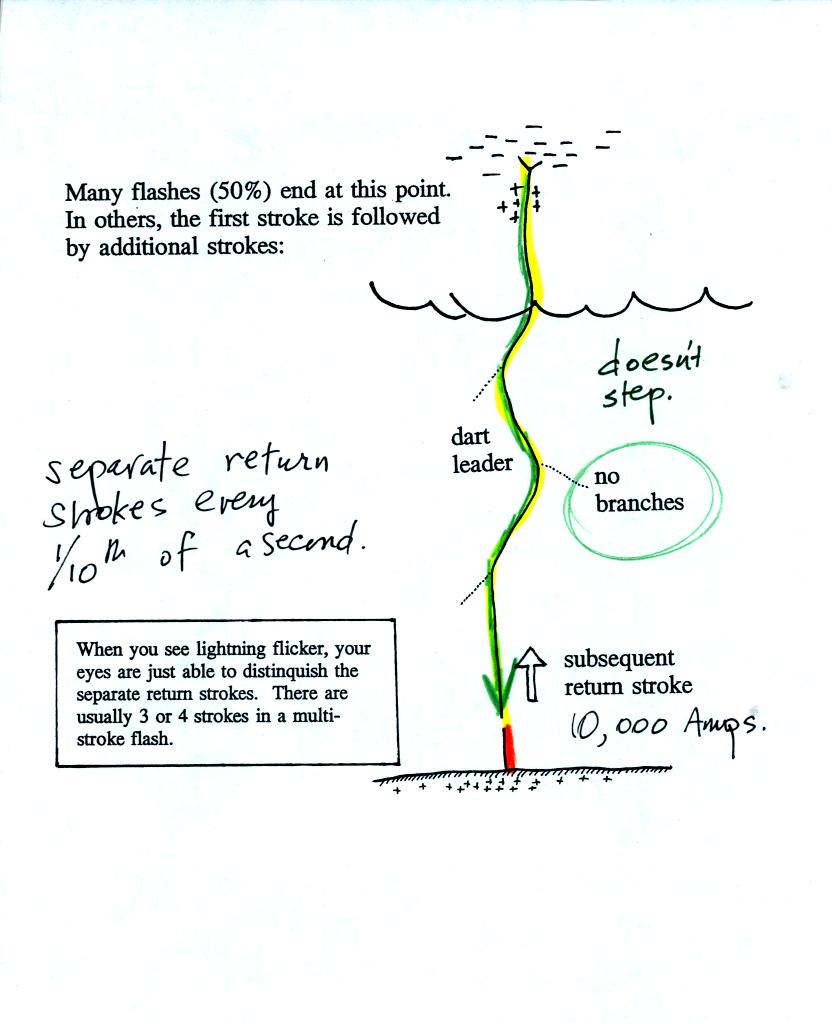 Many flashes (50%) end at this point.
In others, the first stroke is followed
by additional strokes:
doesn't
step.
dart
leader
no
branches
separate return
strokes every
1/10th of a second.
When you see lightning flicker, your
eyes are just able to distinquish the
separate return strokes. There are
usually 3 or 4 strokes in a multi-
stroke flash.
subsequent
return stroke
10,000 Amps.